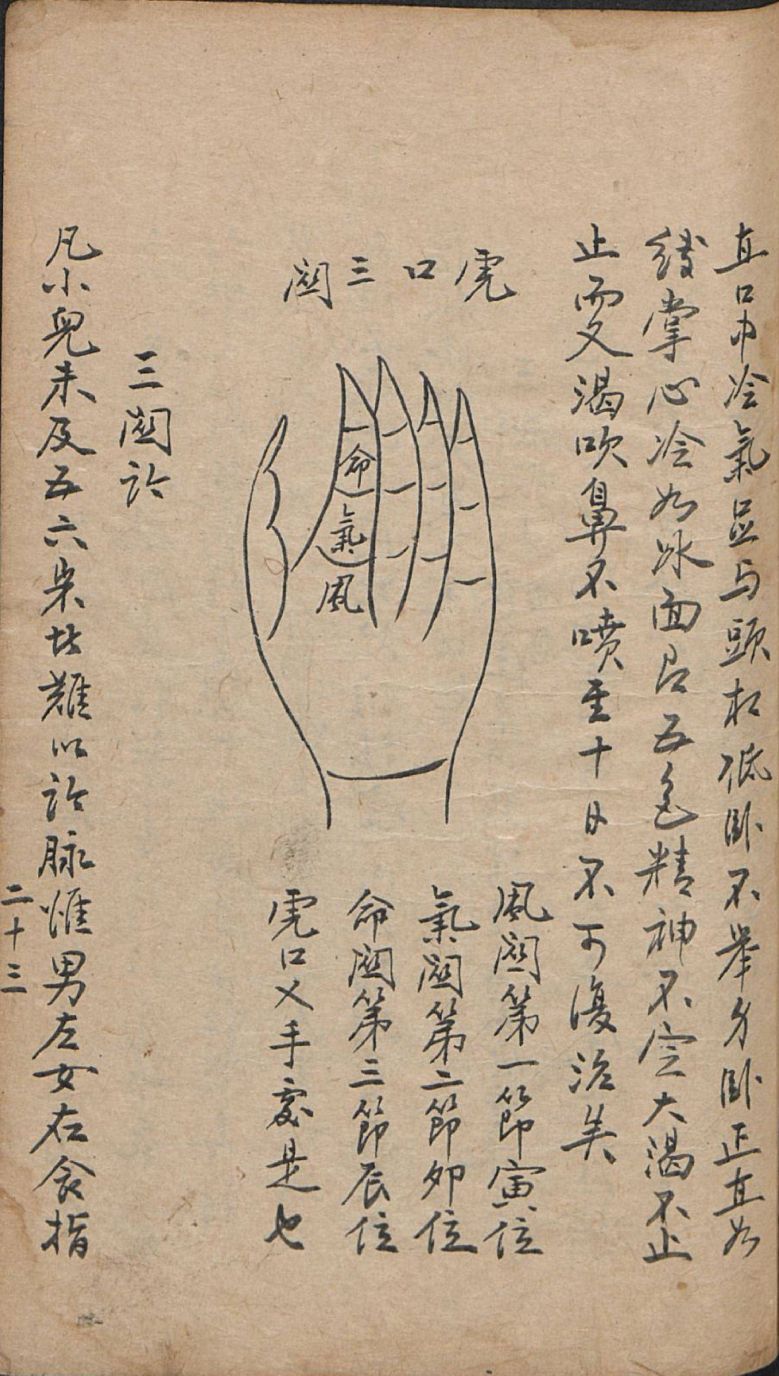 直口中冷氣足与頭相低卧不舉身卧正直如
线掌心冷如冰面君五色精神不定大渴不止
止而又渴吹鼻不噴至十日不可復治矣
虎口三関
命
氣
風
風関第一節寅位
氣関第二節卯位
命関第三節辰位
虎口乂手處是也
三関訟
凡小兒未及五六歲者難以診脉惟男左女右食指
二十三